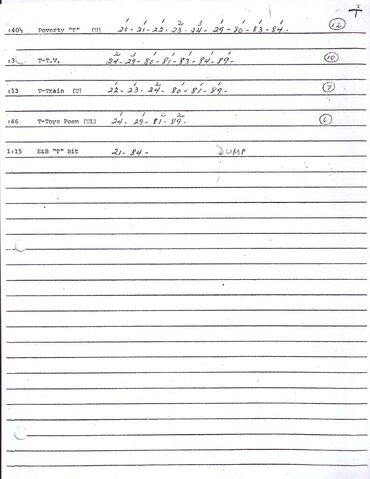 T
:40½ Poverty "T" (U) 20- 21- 22- 23- 24- 29- 80- 83- 84- 12
T-T.V. 24- 29- 80- 81- 83- 84- 89- 10
:13 T-Train (U) 22- 23- 24- 80- 81- 89- 7
:46 T-Toys Poem (UL) 24- 29- 81- 89- 6
1:15 E&B "T" Bit 21- 84- DUMP